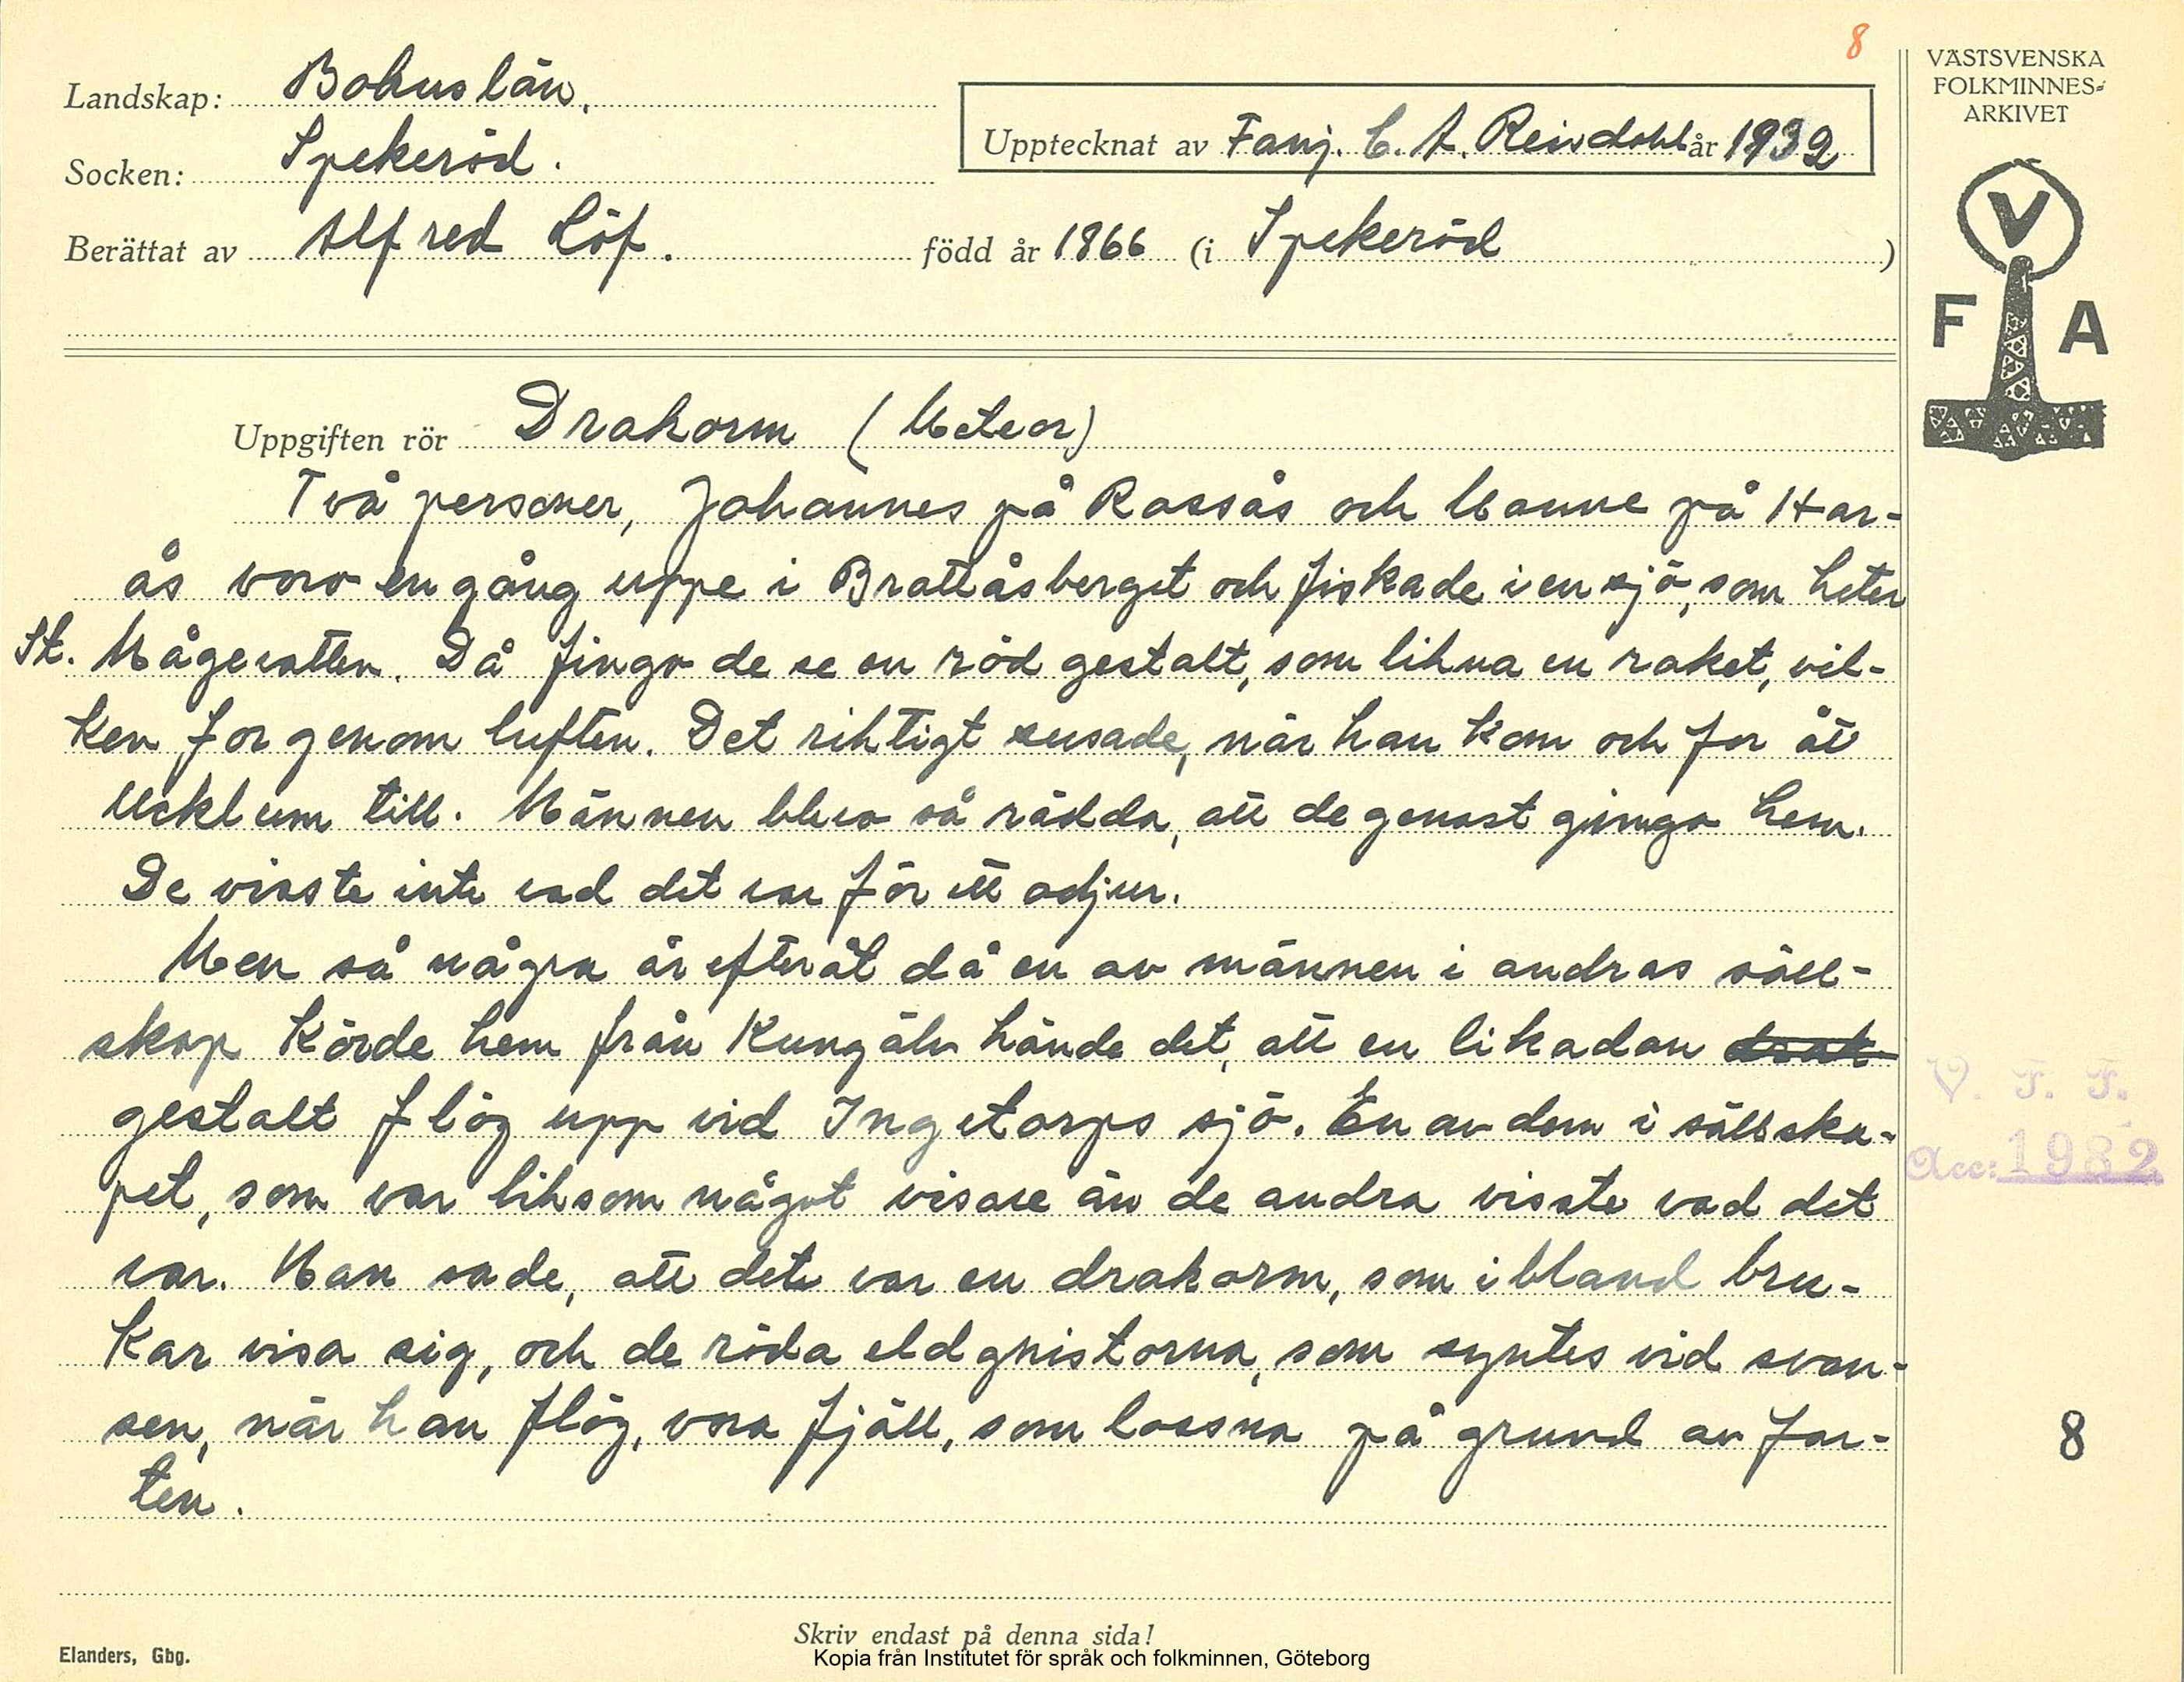 8
Landskap: Bohuslän.
Socken: Spekeröd.
Upptecknat av Fanj. C. A. Reisdahl år 1932
Berättat av Alfred Löf. född år 1866 (i Spekeröd )
VÄSTSVENSKA
FOLKMINNES-
ARKIVET
V
F A
Uppgiften rör Drakorm (Meteor)
Två personer, Johannes på Rossås och Manne på Har-
ås voro en gång uppe i Brattåsberget och fiskade i en sjö, som heter
St. Mågevatten. Då fingo de se en röd gestalt, som likna en raket, vil-
ken for genom luften. Det riktigt susade, när han kom och for åt
Ucklum till. Männen blevo så rädda, att de genast gingo hem.
De visste inte vad det var för ett odjur.
Men så några år efteråt då en av männen i andras säll-
skap körde hem från Kungälv hände det, att en likadan drak
gestalt flög upp vid Ingetorps sjö. En av dem i sällska-
pet, som var liksom något visare än de andra visste vad det
var. Han sade, att dete var en drakorm, som ibland bru-
kar visa sig, och de röda eldgnistorna, som syntes vid svan-
sen, när han flög, vora fjäll, som lossna på grund av far-
ten.
V. F. F.
Acc: 1982
8
Skriv endast på denna sida!
Elanders, Gbg.
Kopia från Institutet för språk och folkminnen, Göteborg